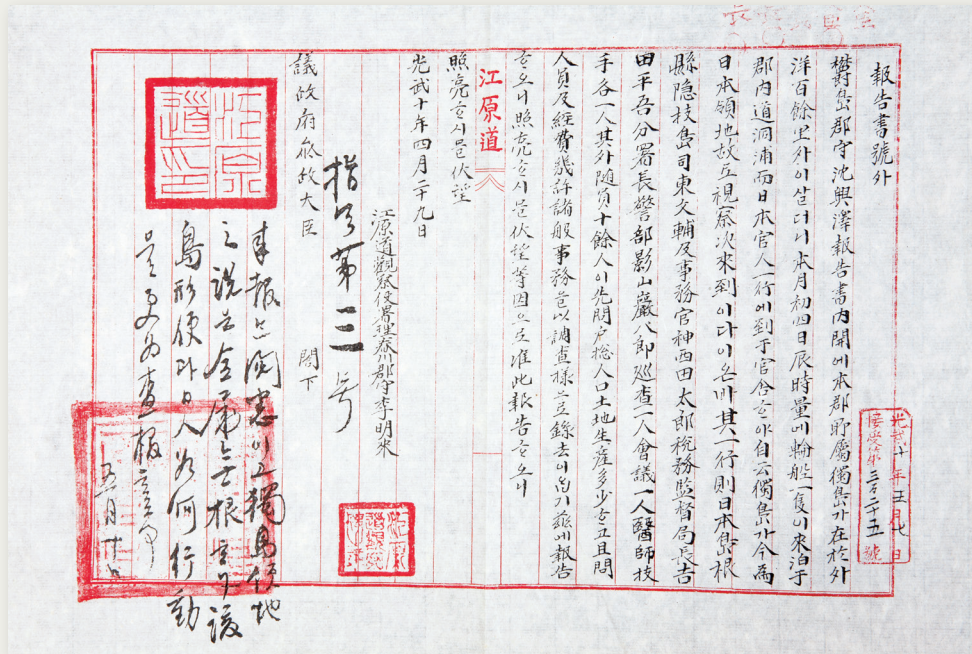 報告書號外
欝島郡守沈興澤報告書內開에本郡所屬獨島가在於外
洋百餘里外이살더니本月初四日辰時量에輪船一隻이來泊于
郡內道洞浦而日本官人一行에到于官舍ᄒᆞ야自云獨島가今爲
日本領地故로視察次來到이다이온바其一行則日本島根
縣隱枝島司東文輔及事務官神西田太郎稅務監督局長吉
田平吾分署長警部影山巖八郎巡査一人會議一人醫師技
手各一人其外隨員十餘人이先問戶摠人口土地生産多少ᄒᆞ고且問
人員及經費幾許諸般事務를以調査樣으로錄去이ᄋᆞᆸ기玆에報告
ᄒᆞ오니照亮ᄒᆞ시믈伏望等因으로准此報告ᄒᆞ오니
照亮ᄒᆞ시믈伏望
江原道
光武十年四月二十九日
江原道觀察使署理春川郡守李明來
議政府參政大臣 閤下
指令第三号
來報는閱悉이고獨島領地
之說은全屬無根ᄒᆞ나該
島形便과日人如何行動
을更爲査報ᄒᆞᆯ事
五月
光武十年五月七日
接受第三百二十五號